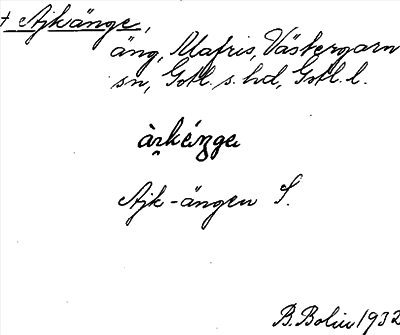 † Ajkänge,
äng, Mafris, Västergarn
sn, Gotl. s. hd, Gotl. l.
Ajk-ängen S.
B. Bolin 1932